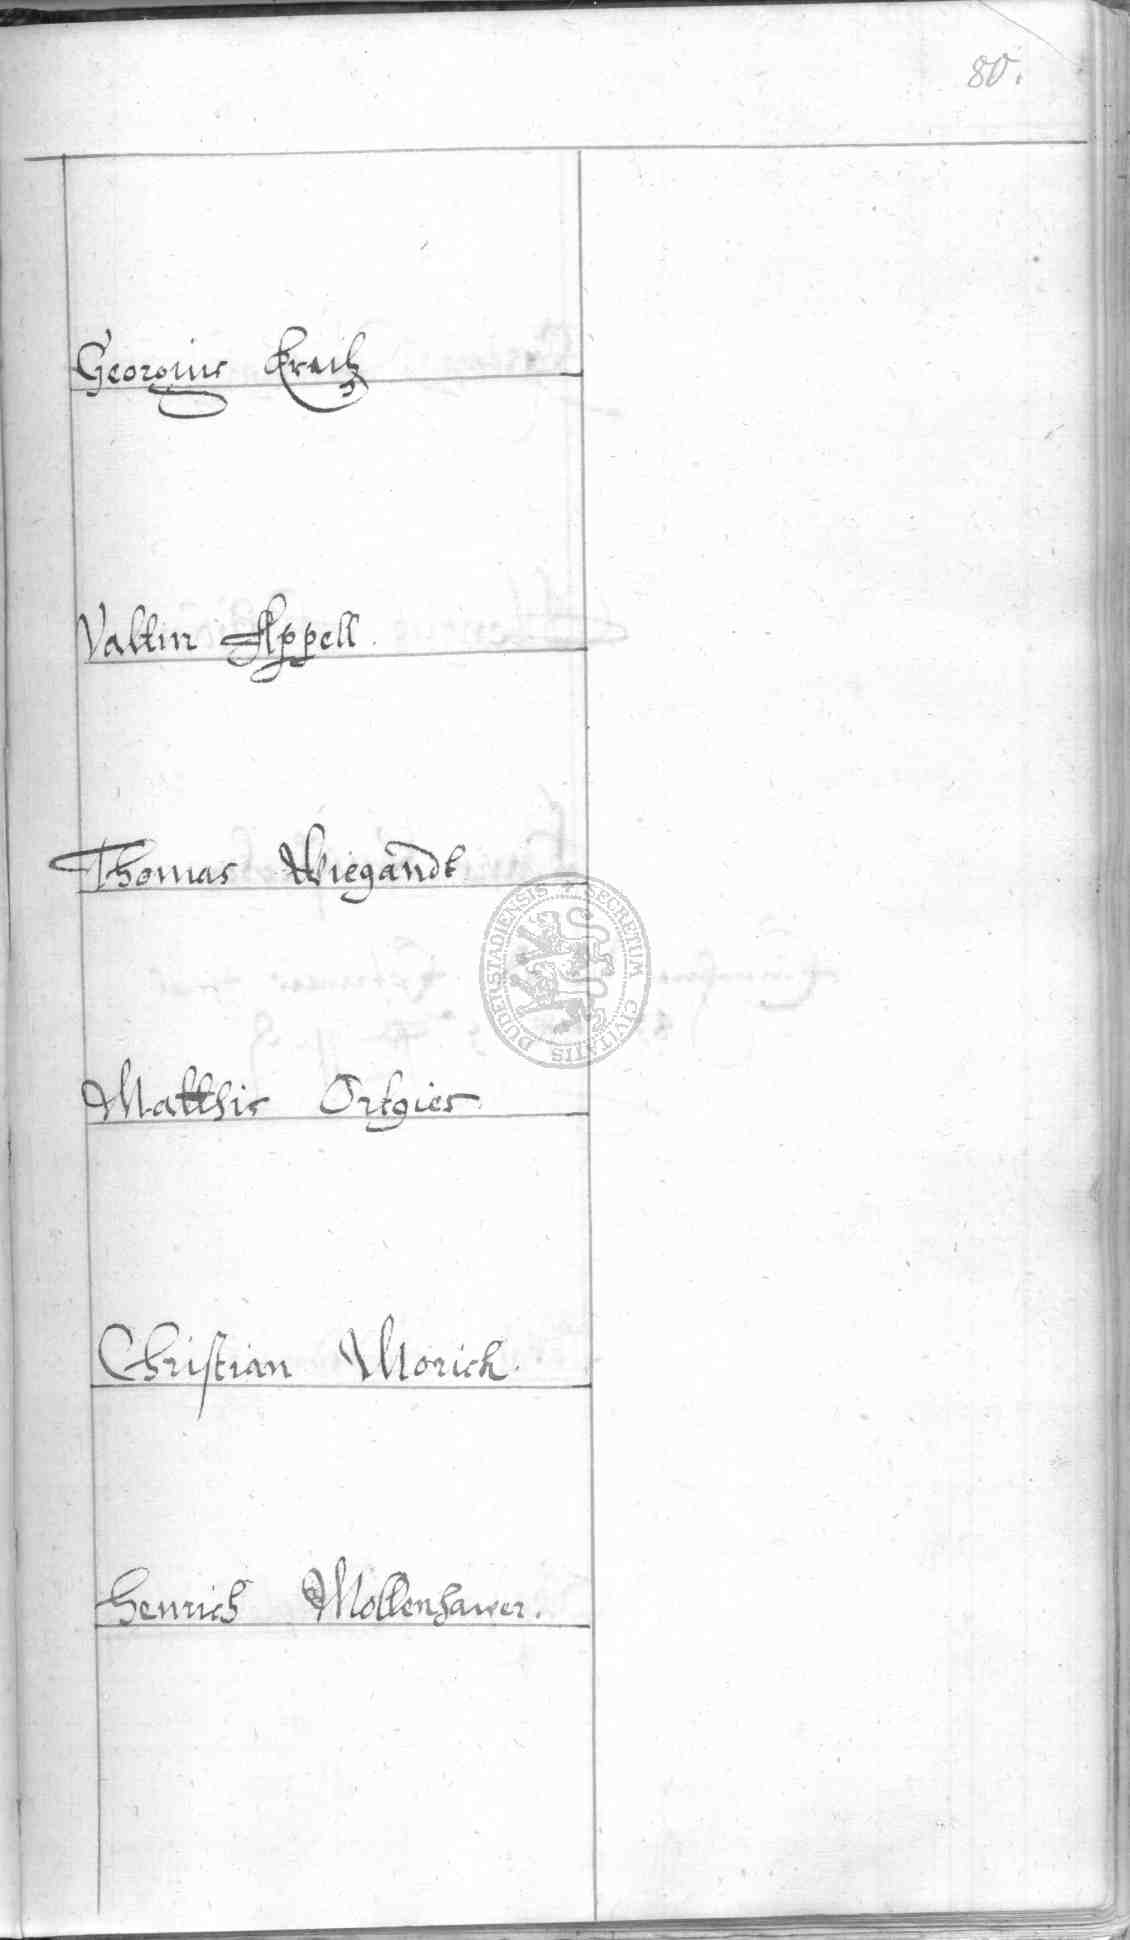 80.
Georgius Kreitz
Valtin Appell.
Thomas Wiegandt
SECRETUM CIVITATIS DUDERSTADIENSIS
Matthis Ortgies
Christian Morick.
Henrich Mollenhawer.